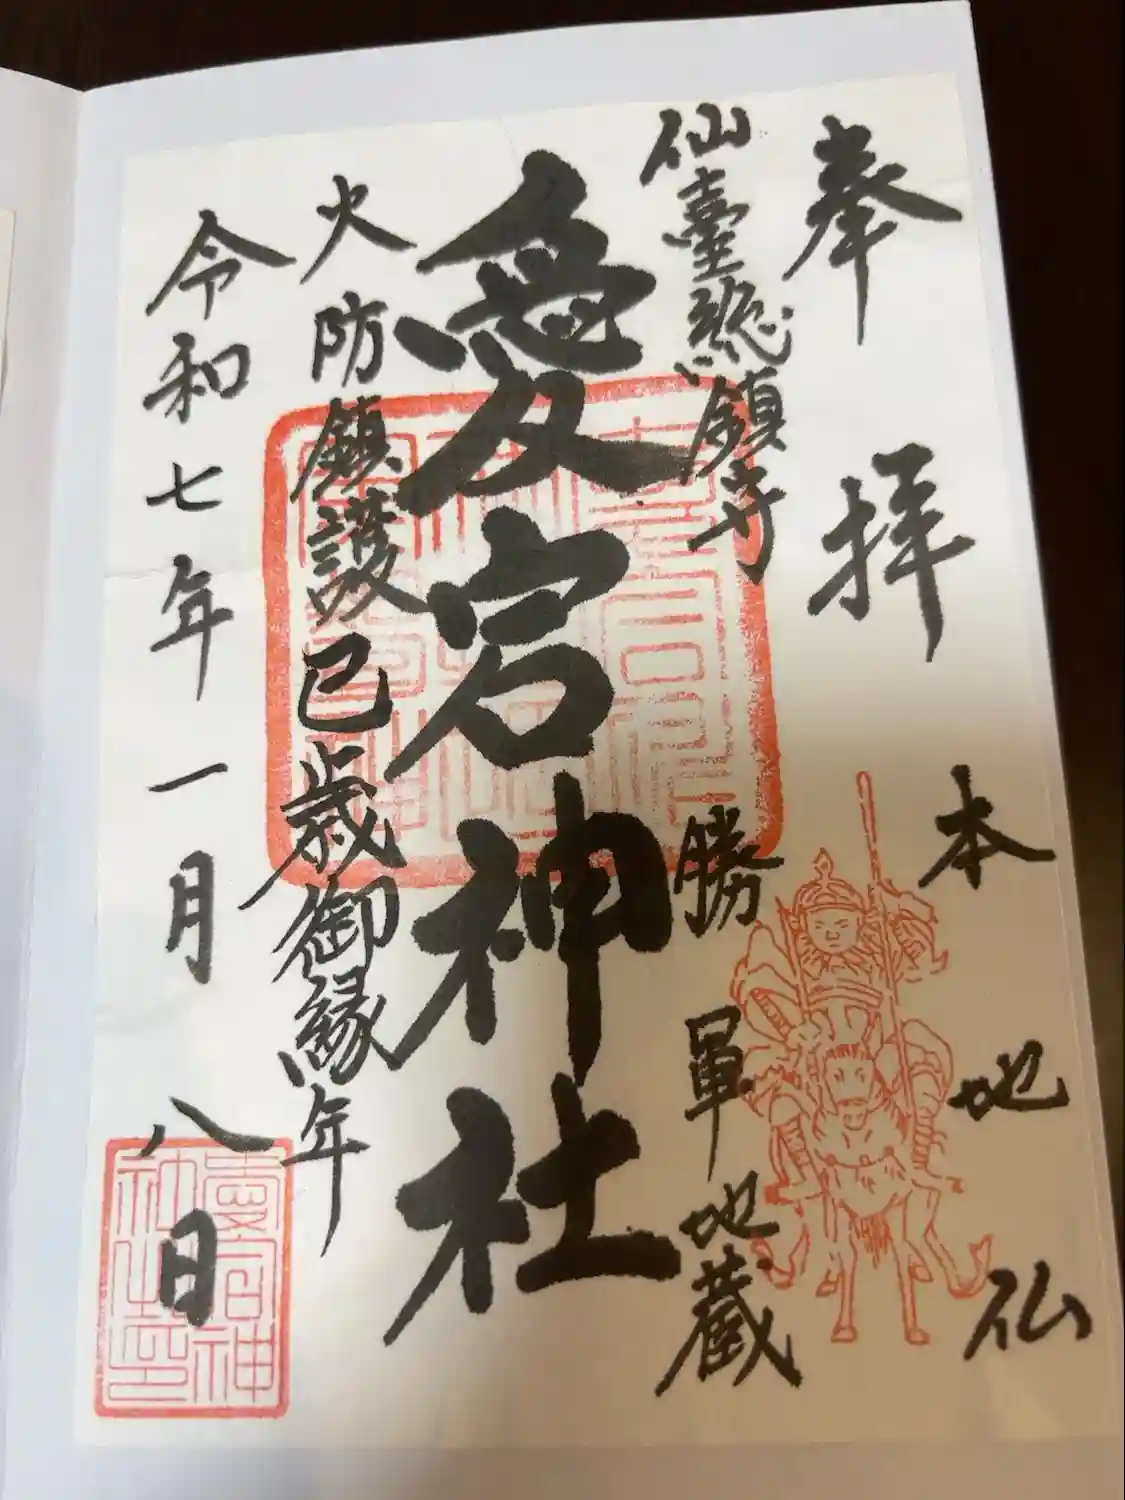 奉拝
本地仏
仙臺総鎮守
勝軍地蔵
愛宕神社
火防鎮護巳歳御縁年
令和七年一月八日
愛宕神社之印